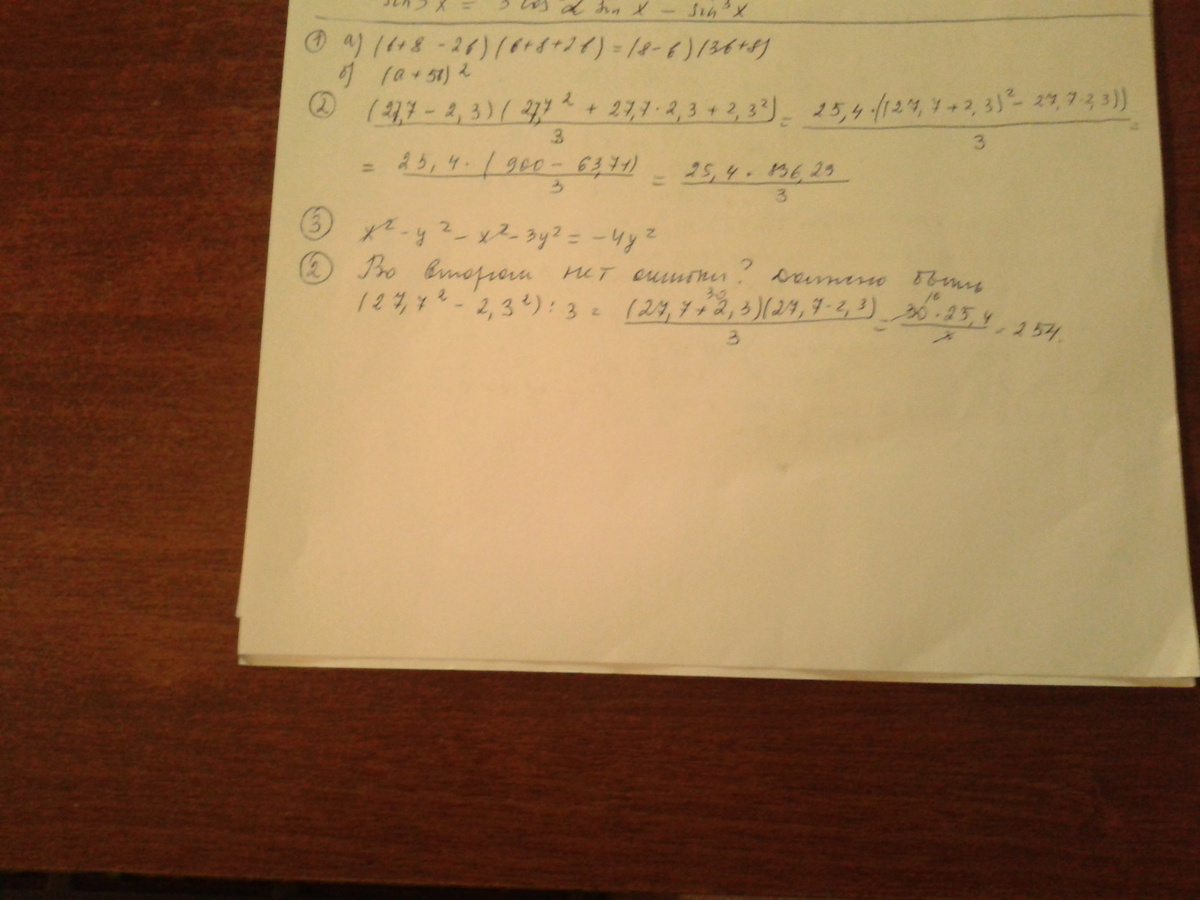 sin 3x = 3 cos²x sin x - sin³x
① a) (b+8-2b)(b+8+2b) = (8-b)(3b+8)
б) (a+5b)²
② (27,7-2,3)(27,7²+27,7·2,3+2,3²)/3 = 25,4·((27,7+2,3)²-27,7·2,3))/3 =
= 25,4·(900-63,71)/3 = 25,4·836,29/3
③ x²-y²-x²-3y² = -4y²
② Во втором нет ошибки? Должно быть
(27,7²-2,3²):3 = (27,7+2,3)(27,7-2,3)/3 = 30·25,4/3 = 254.